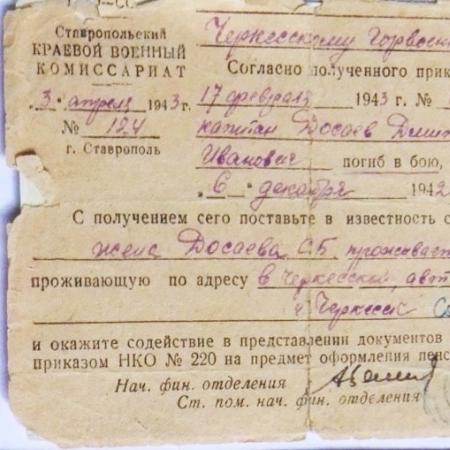 Ставропольский
КРАЕВОЙ ВОЕННЫЙ
КОМИССАРИАТ
3 апреля 1943 г.
№ 124
г. Ставрополь
Черкесскому Горвоен
Согласно полученного прик
17 февраля 1943 г. №
капитан Досаев
Иванович погиб в бою,
6 декабря 1942
С получением сего поставьте в известность с
жена Досаева С.Б. проживает
проживающую по адресу в Черкесской авт
г. Черкесс
и окажите содействие в представлении документов
приказом НКО № 220 на предмет оформления пенс
Нач. фин. отделения
Ст. пом. нач. фин. отделения